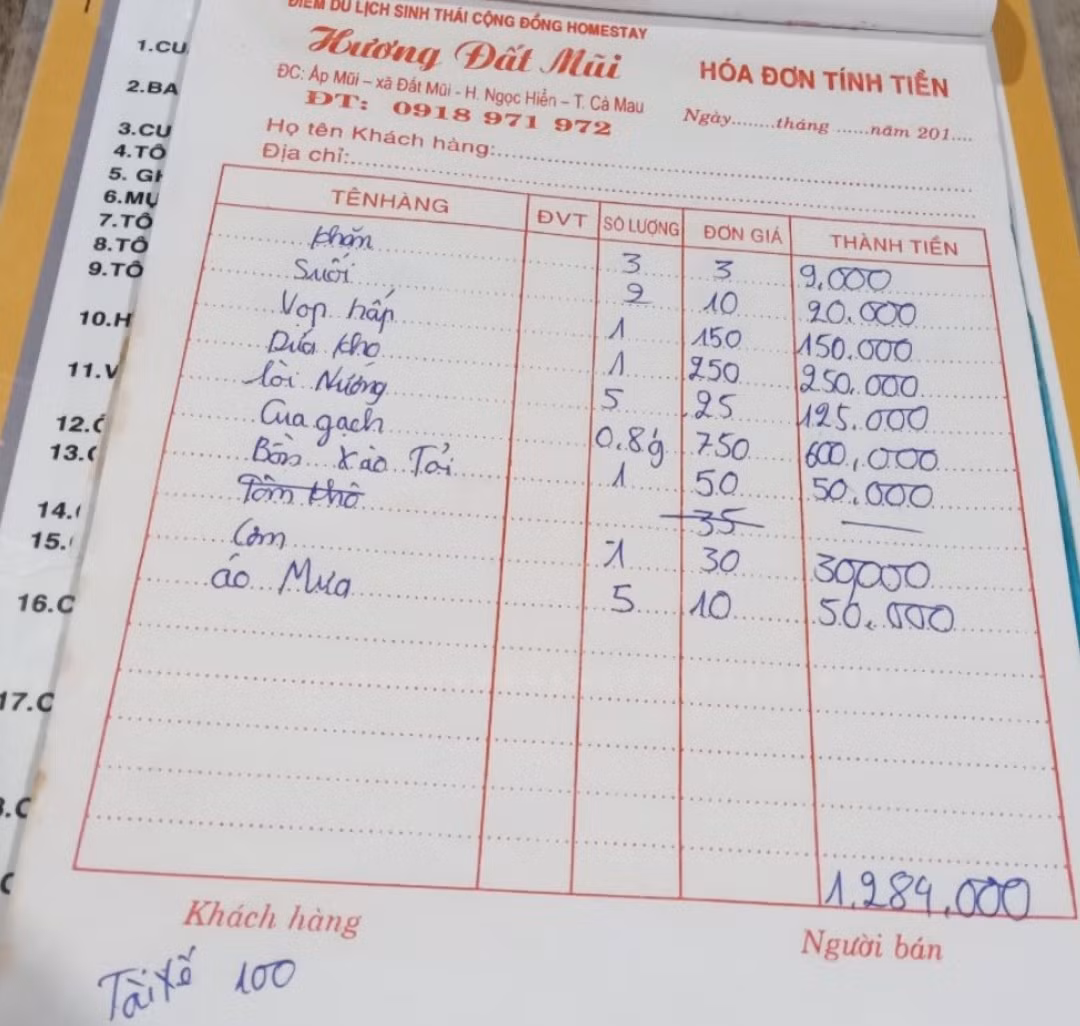 ĐIỂM DU LỊCH SINH THÁI CỘNG ĐỒNG HOMESTAY
Hương Đất Mũi
HÓA ĐƠN TÍNH TIỀN
ĐC: Ấp Mũi – xã Đất Mũi - H. Ngọc Hiển – T. Cà Mau
ĐT: 0918 971 972
Ngày........tháng ......năm 201....
Họ tên Khách hàng:
Địa chỉ:
TÊNHÀNG ĐVT SỐ LƯỢNG ĐƠN GIÁ THÀNH TIỀN
khăn 3 3 9,000
Suối 2 10 20.000
Vọp hấp 1 150 150.000
Dứa kho 1 250 250.000
lòi Nướng 5 25 125.000
Cua gạch 0.8g 750 600,000
Bồn xào Tỏi 1 50 50.000
Tôm khô 35
Cơm 1 30 30000
áo Mưa 5 10 50.000
1.284.000
Khách hàng
Người bán
Tài xế 100
1.CU
2.BA
3.CU
4.TÔ
5. GH
6.MỰ
7.TÔ
8.TÔ
9.TÔ
10.H
11.V
12.
13.
14.
15.
16.C
17.C